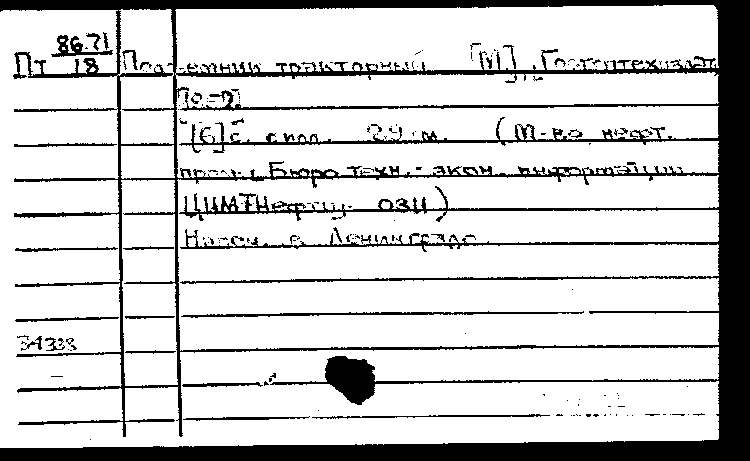 Пт 86.71
18
Подъемник тракторный. [М], Гостоптехиздат,
[б] с. с илл. 29 см. (М-во нефт.
пром. Бюро техн.-экон. информации
ЦИМТНефти)
Напеч. в Ленинграде.
34338